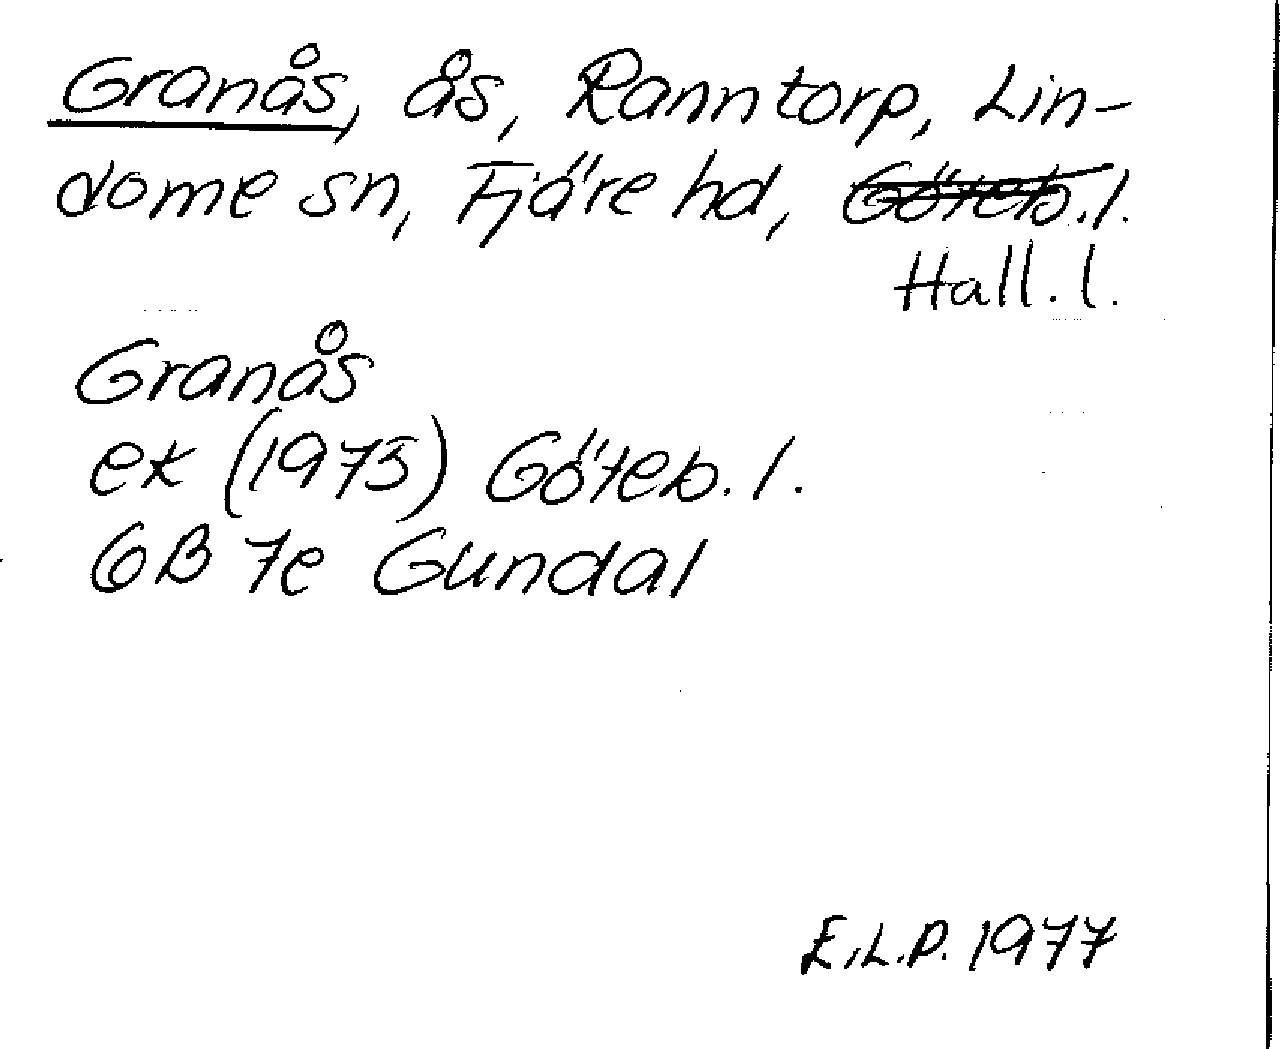 Granås, ås, Ranntorp, Lin-
dome sn, Fjäre hd, Göteb.l.
Hall.l.
Granås
ek (1975) Göteb.l.
6B 7e Gundal
E.L.P. 1977